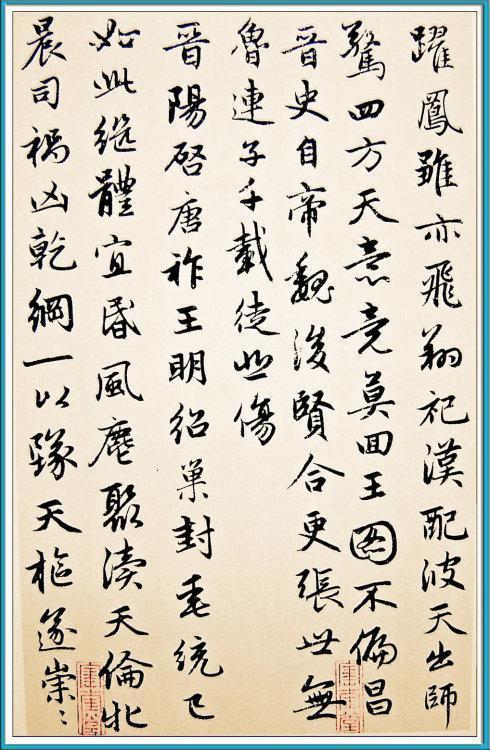 躍鳳雛亦飛翔祀漢配彼天出師
驚四方天意竟莫回王图不偏昌
晉史自帝魏後賢合更張世無
魯連子千載徒悲傷
晉陽啓唐祚王明紹巢封垂統已
如此継體宜昏風麀聚瀆天倫牝
晨司禍凶乾綱一以墜天樞遂崇〻